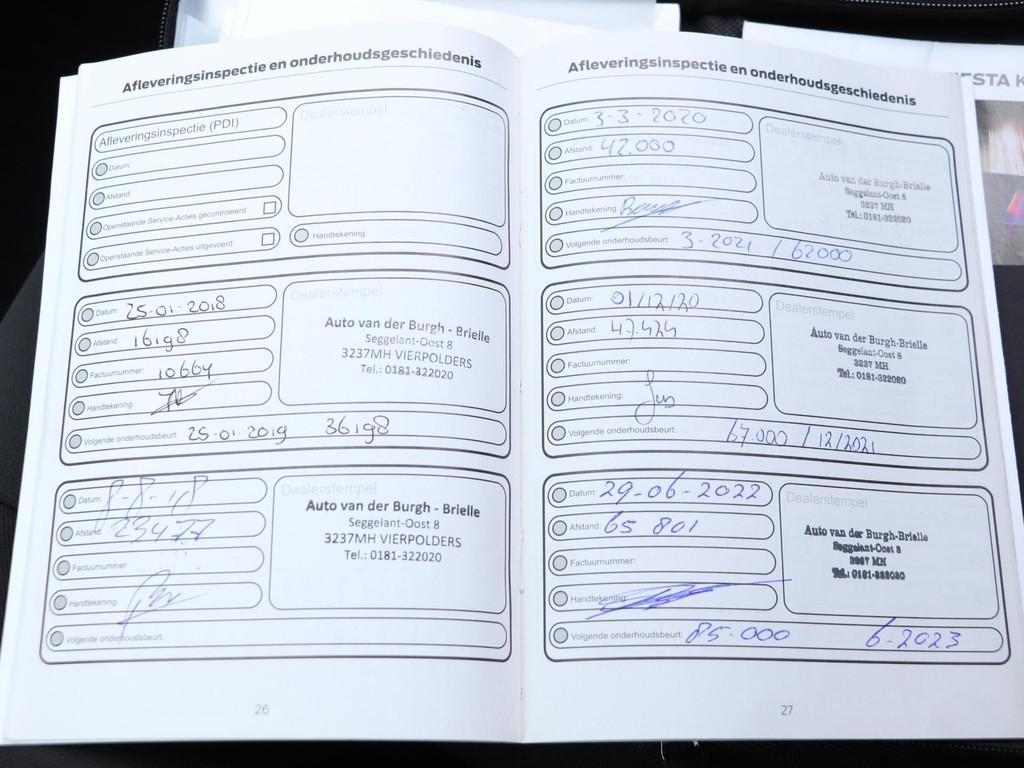 Afleveringsinspectie en onderhoudsgeschiedenis
Afleveringsinspectie (PDI)
Dealerstempel
Datum:
Afstand:
Openstaande Service-Acties gecontroleerd:
Openstaande Service-Acties uitgevoerd:
Handtekening:
Datum: 25-01-2018
Afstand: 16198
Factuurnummer: 10664
Handtekening:
Volgende onderhoudsbeurt: 25-01-2019 36198
Dealerstempel
Auto van der Burgh - Brielle
Seggelant-Oost 8
3237MH VIERPOLDERS
Tel.: 0181-322020
Datum: 8-8-18
Afstand: 23477
Factuurnummer:
Handtekening:
Volgende onderhoudsbeurt:
Dealerstempel
Auto van der Burgh - Brielle
Seggelant-Oost 8
3237MH VIERPOLDERS
Tel.: 0181-322020
26
Afleveringsinspectie en onderhoudsgeschiedenis
Datum: 3-3-2020
Afstand: 42.000
Factuurnummer:
Handtekening:
Volgende onderhoudsbeurt: 3-2021 / 62000
Dealerstempel
Auto van der Burgh-Brielle
Seggelant-Oost 8
3237 MH
Tel.: 0181-322020
Datum: 01/12/20
Afstand: 47.424
Factuurnummer:
Handtekening:
Volgende onderhoudsbeurt: 67.000 / 12/2021
Dealerstempel
Auto van der Burgh-Brielle
Seggelant-Oost 8
3237 MH
Tel.: 0181-322020
Datum: 29-06-2022
Afstand: 65 801
Factuurnummer:
Handtekening:
Volgende onderhoudsbeurt: 85.000 6-2023
Dealerstempel
Auto van der Burgh-Brielle
Seggelant-Oost 8
3237 MH
Tel.: 0181-322020
27
ESTA K